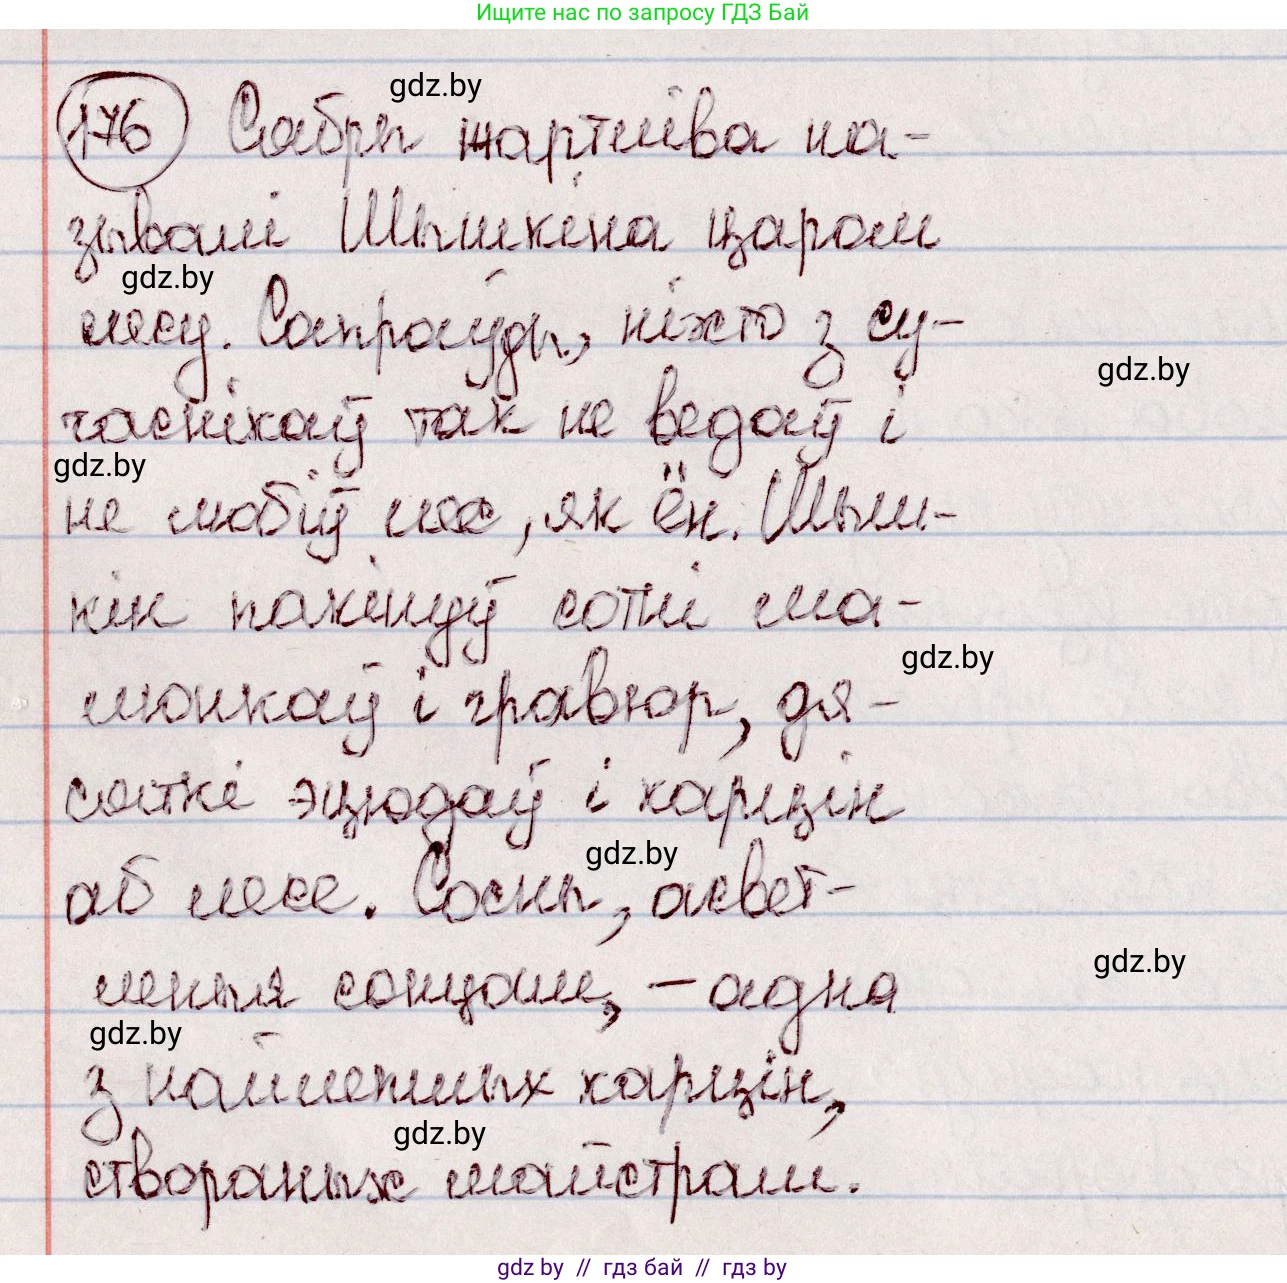 Ищите нас по запросу ГДЗ Бай
gdz.by
176 Сябры жартліва на-
зывалі Шышкіна царом
gdz.by
лесу. Сапраўды, ніхто з су-
gdz.by
часнікаў так не ведаў і
gdz.by
не любіў лес, як ён. Шыш-
кін пакінуў сотні ма-
gdz.by
люнкаў і гравюр, дзя-
сяткі эцюдаў і карцін
gdz.by
аб лесе. Сосны, асвет-
gdz.by
леныя сонцам, – адна
gdz.by
з найлепшых карцін,
gdz.by
створаных майстрам.
gdz by // гдз бай // гдз by